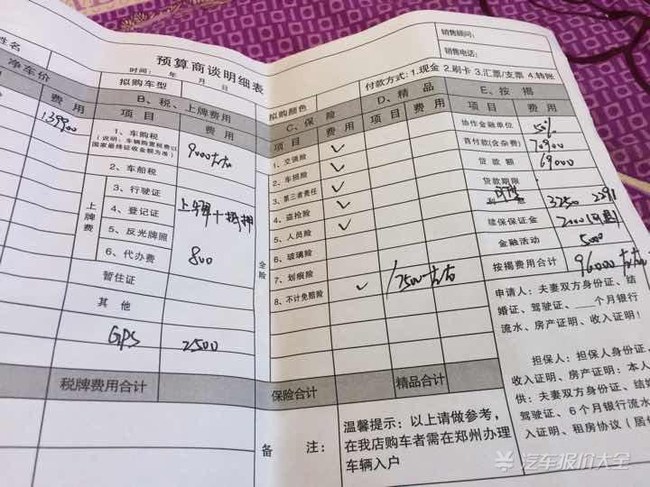 预算商谈明细表
姓名
时间： 年 月 日
销售顾问：
销售电话：
净车价
拟购车型
拟购颜色
付款方式：1.现金 2.刷卡 3.汇票/支票 4.转账
费用
139900
B、税、上牌费用
项目 费用
1、车购税
（说明：车辆购置税费以
国家最终征收金额为准）
9000左右
2、车船税
上牌费
3、行驶证
4、登记证
上牌+抵押
5、反光牌照
6、代办费
800
暂住证
其他
GPS 2500
税牌费用合计
C、保险
项目 费用
全险
1、交强险 ✓
2、车损险 ✓
3、第三者责任 ✓
4、盗抢险 ✓
5、人员险 ✓
6、玻璃险
7、划痕险
8、不计免赔险 ✓
7500左右
保险合计
D、精品
项目 费用
精品合计
E、按揭
项目 费用
协作金融单位 50%
首付款(含杂费) 70900
贷款额 69000
贷款期限
3250 2291
续保保证金 2000
金融活动 5000
按揭费用合计 96000左右
申请人：夫妻双方身份证、结
婚证、驾驶证、 个月银行
流水、房产证明、收入证明！
担保人：担保人身份证、
收入证明、房产证明：本人
供：夫妻双方身份证、结
驾驶证、6个月银行流水
入证明、租房协议（居
备注：
温馨提示：以上请做参考，
在我店购车者需在郑州办理
车辆入户
汽车报价大全